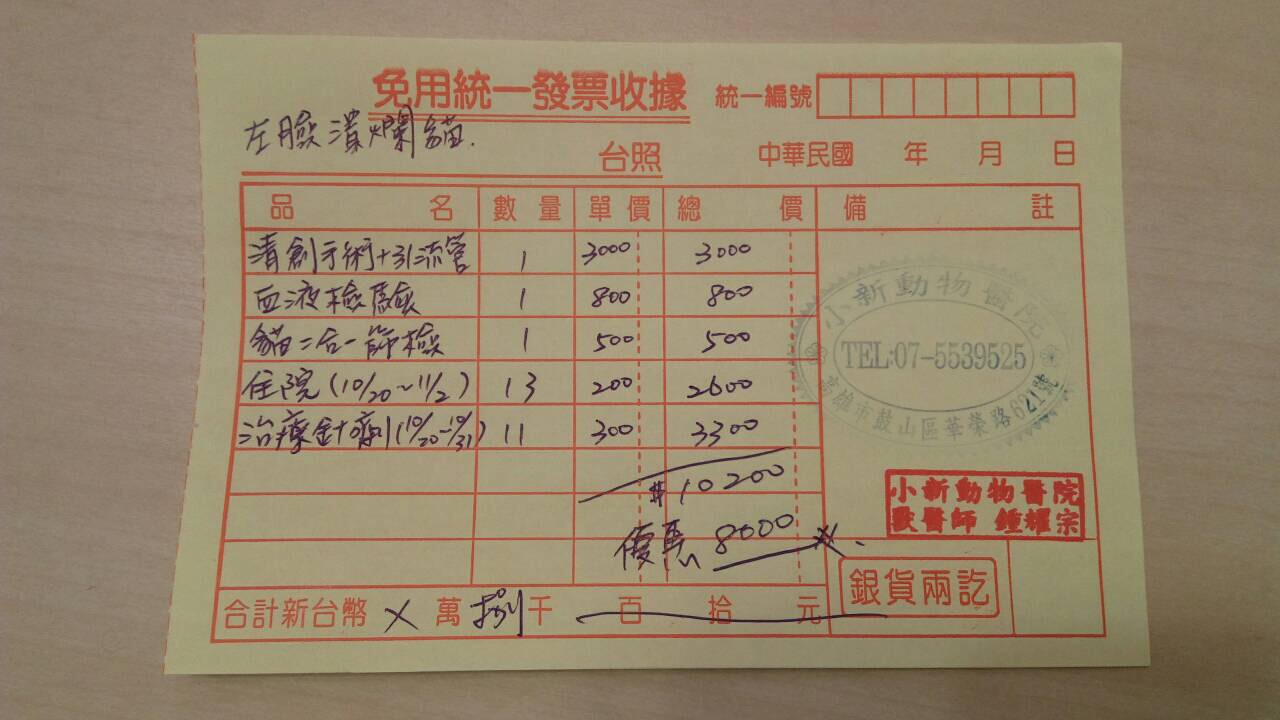 免用統一發票收據 統一編號
左臉潰爛貓.
台照 中華民國 年 月 日
品 名 數量 單價 總 價 備 註
清創手術+引流管 1 3000 3000
血液檢驗 1 800 800
貓二合一篩檢 1 500 500
住院(10/20~11/2) 13 200 2600
治療針劑(10/20~10/31) 11 300 3300
$10200
優惠 8000
小新動物醫院
TEL:07-5539525
高雄市鼓山區華榮路621號
小新動物醫院
獸醫師 鍾耀宗
銀貨兩訖
合計新台幣 X 萬 捌 千 百 拾 元